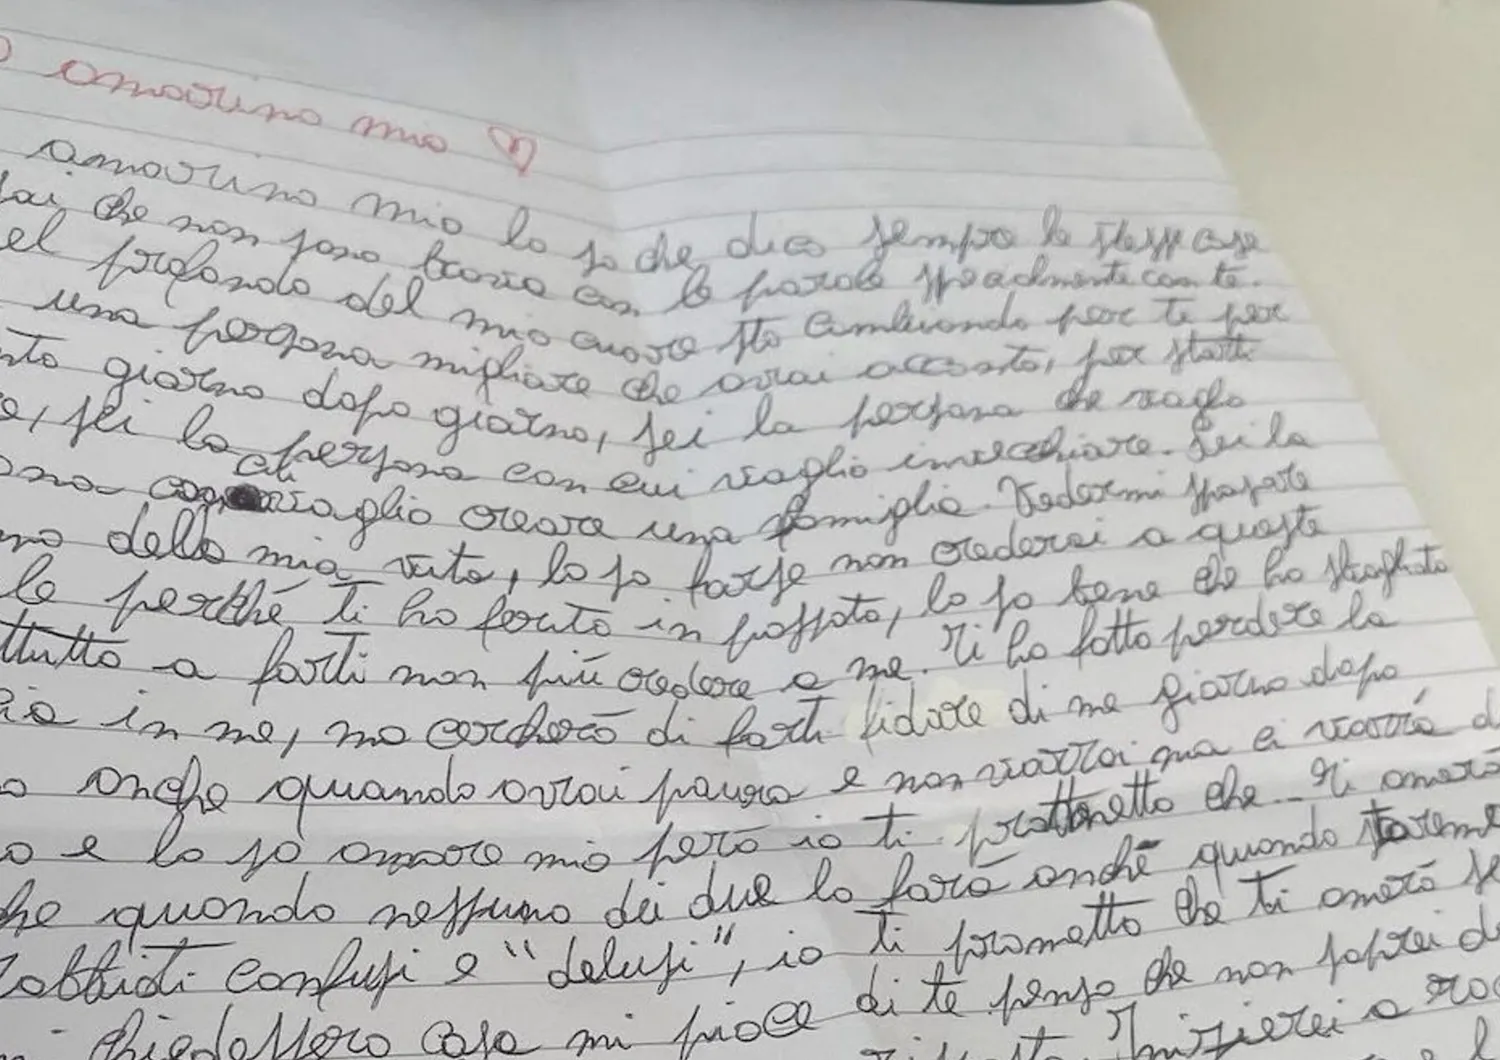 amorino mio ♡
amorino mio lo so che dico sempre le stesse cose
sai che non sono bravo con le parole specialmente con te.
el profondo del mio cuore sto cambiando per te per
una persona migliore che avrai accanto, per starti
nto giorno dopo giorno, sei la persona che voglio
e, sei la persona con cui voglio invecchiare. Sei la
ona con cui voglio creare una famiglia. Vedermi sposare
mo della mia vita, lo so forse non crederai a queste
le perché ti ho ferito in passato, lo so bene che ho sbagliato
ttutto a farti non più credere a me. Ti ho fatto perdere la
cia in me, ma cercherò di farti fidare di me giorno dopo
o anche quando avrai paura e non vorrai ma ci vorrà d
o e lo so amore mio però io ti promettetto che... Ti amerò
he quando nessuno dei due lo farà anche quando saremo
rabbiati confusi e "delusi", io ti prometto che ti amerò se
i chiedessero cosa mi piace di te penso che non saprei d
Inizierei a